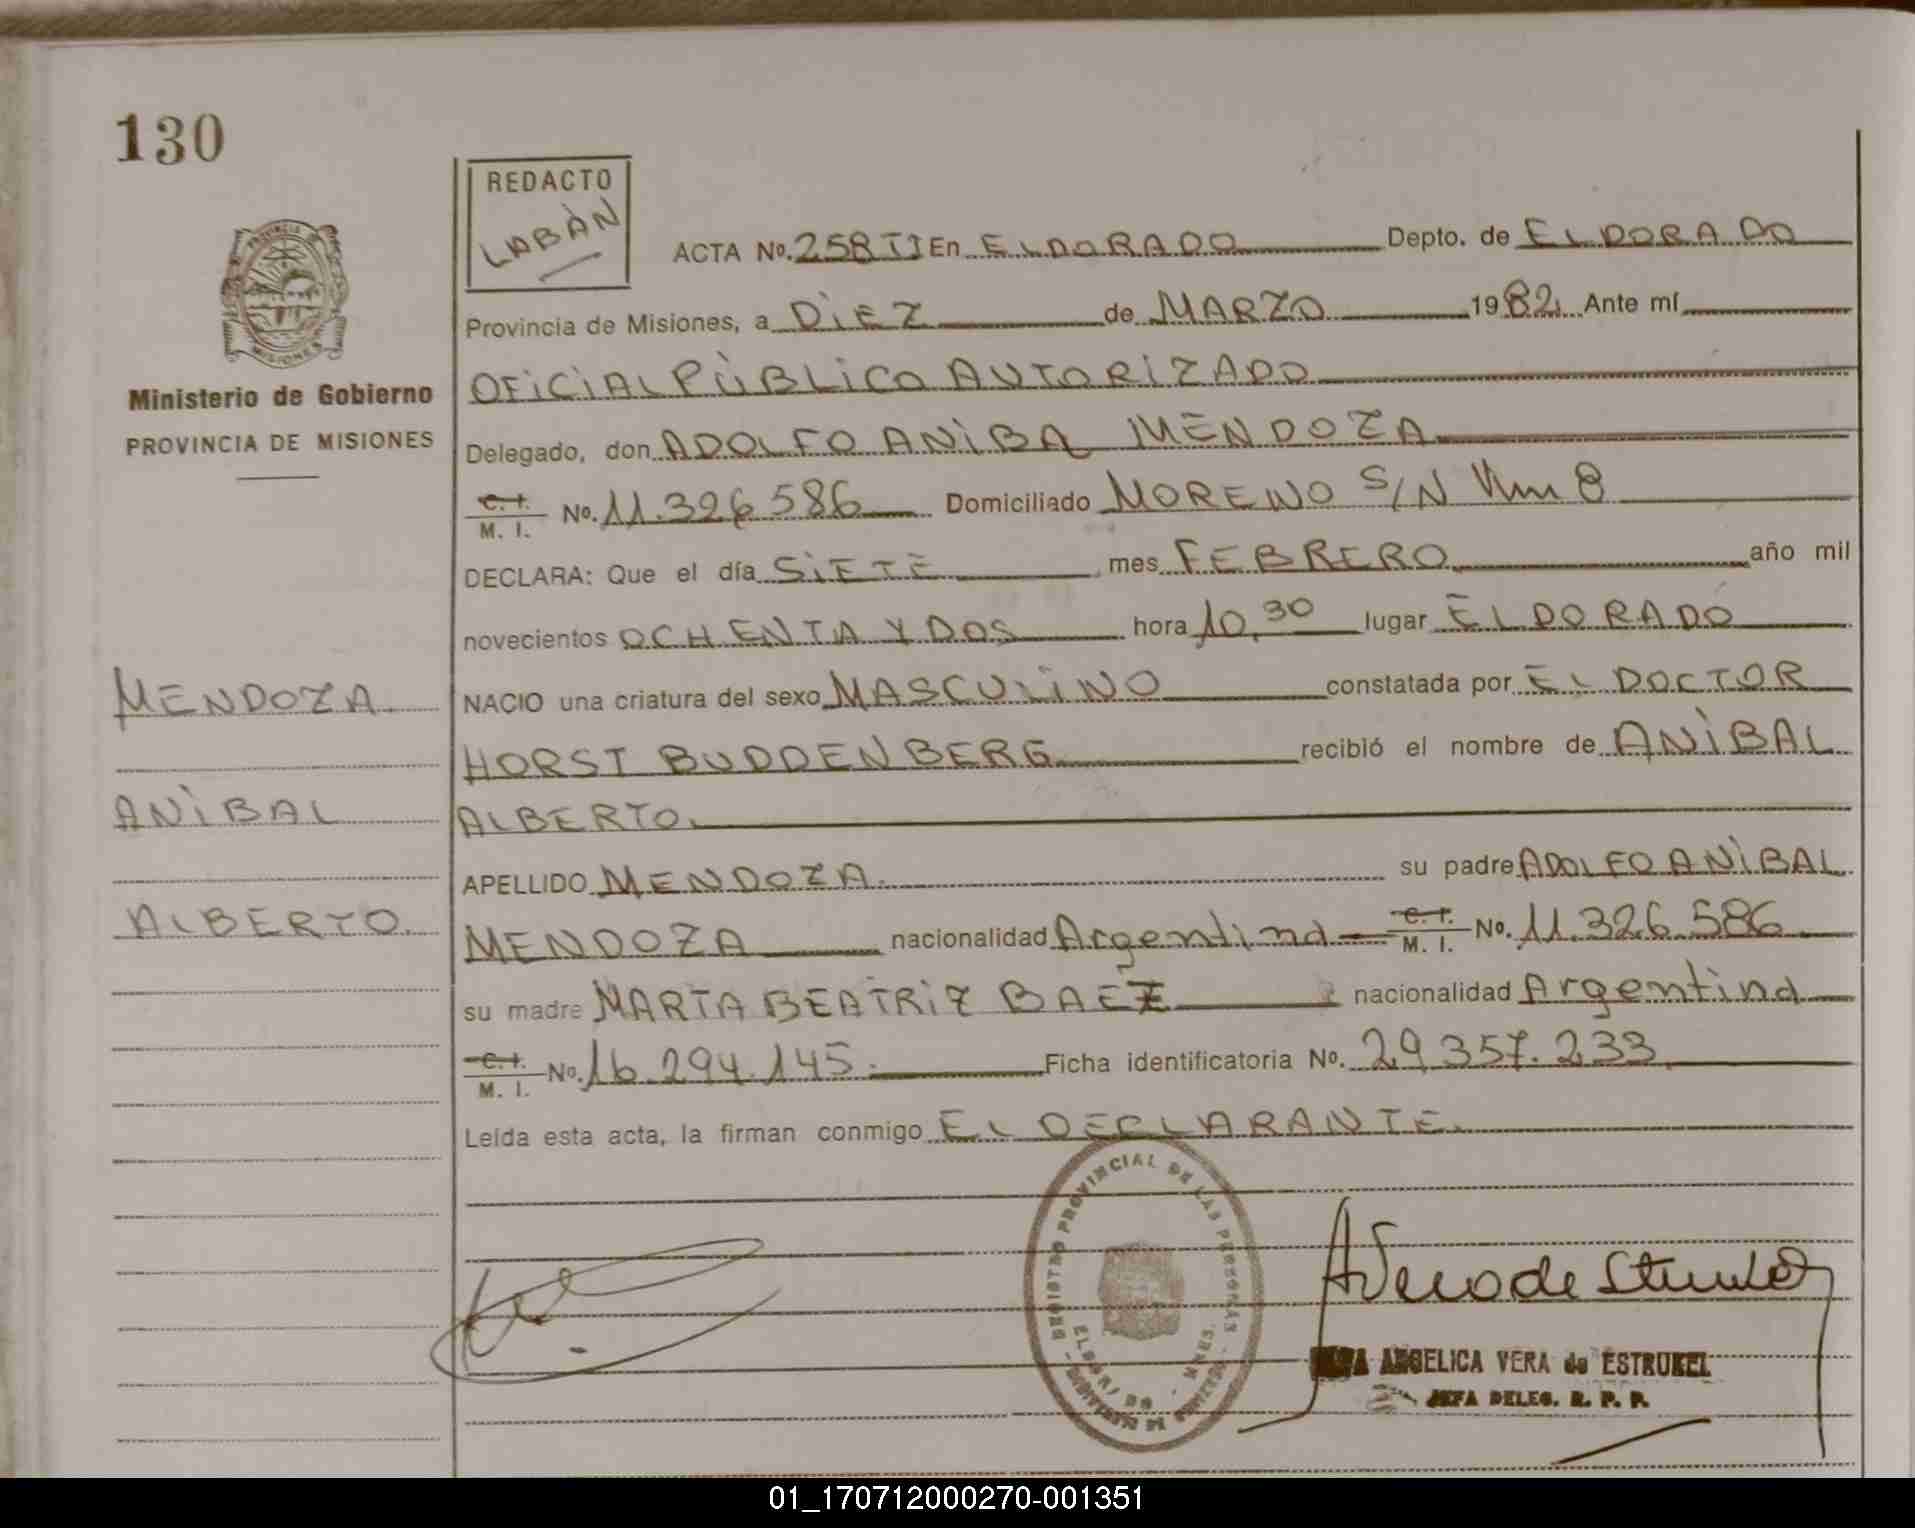 130
REDACTO
LABÀN
ACTA No. 258 TI En ELDORADO Depto. de ELDORADO
Provincia de Misiones, a DIEZ de MARZO 1982 Ante mí
OFICIAL PÙBLICO AUTORIZADO
Ministerio de Gobierno
PROVINCIA DE MISIONES
Delegado, don ADOLFO ANIBA MENDOZA
C. I. M. I. No. 11.326.586 Domiciliado MORENO S/N Km 8
DECLARA: Que el día SIETE mes FEBRERO año mil
novecientos OCHENTA Y DOS hora 10,30 lugar ELDORADO
NACIO una criatura del sexo MASCULINO constatada por EL DOCTOR
HORST BUDDENBERG recibió el nombre de ANIBAL
ALBERTO.
APELLIDO MENDOZA. su padre ADOLFO ANIBAL
MENDOZA nacionalidad Argentina C. I. M. I. No. 11.326.586
su madre MARTA BEATRIZ BAEZ nacionalidad Argentina
C. I. M. I. No. 16.294.145. Ficha identificatoria No. 29.357.233.
Leída esta acta, la firman conmigo EL DECLARANTE.
MENDOZA.
ANIBAL
ALBERTO.
REGISTRO PROVINCIAL DE LAS PERSONAS
ELDORADO - MNES.
ANGELICA VERA de ESTRUKEL
JEFA DELEG. R. P. P.
01_170712000270-001351